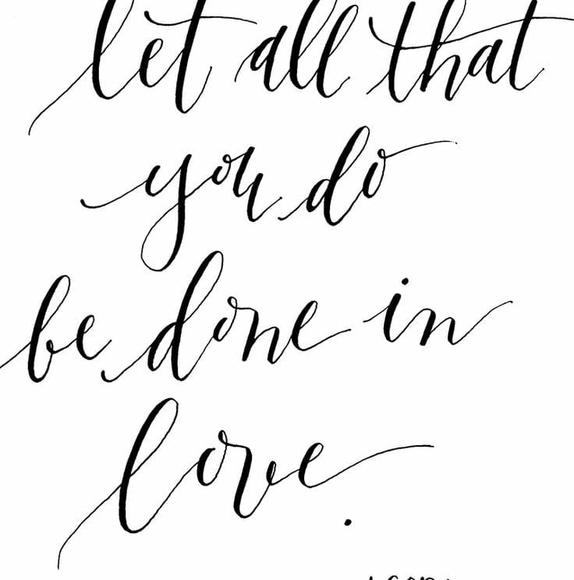 let all that
you do
be done in
love.